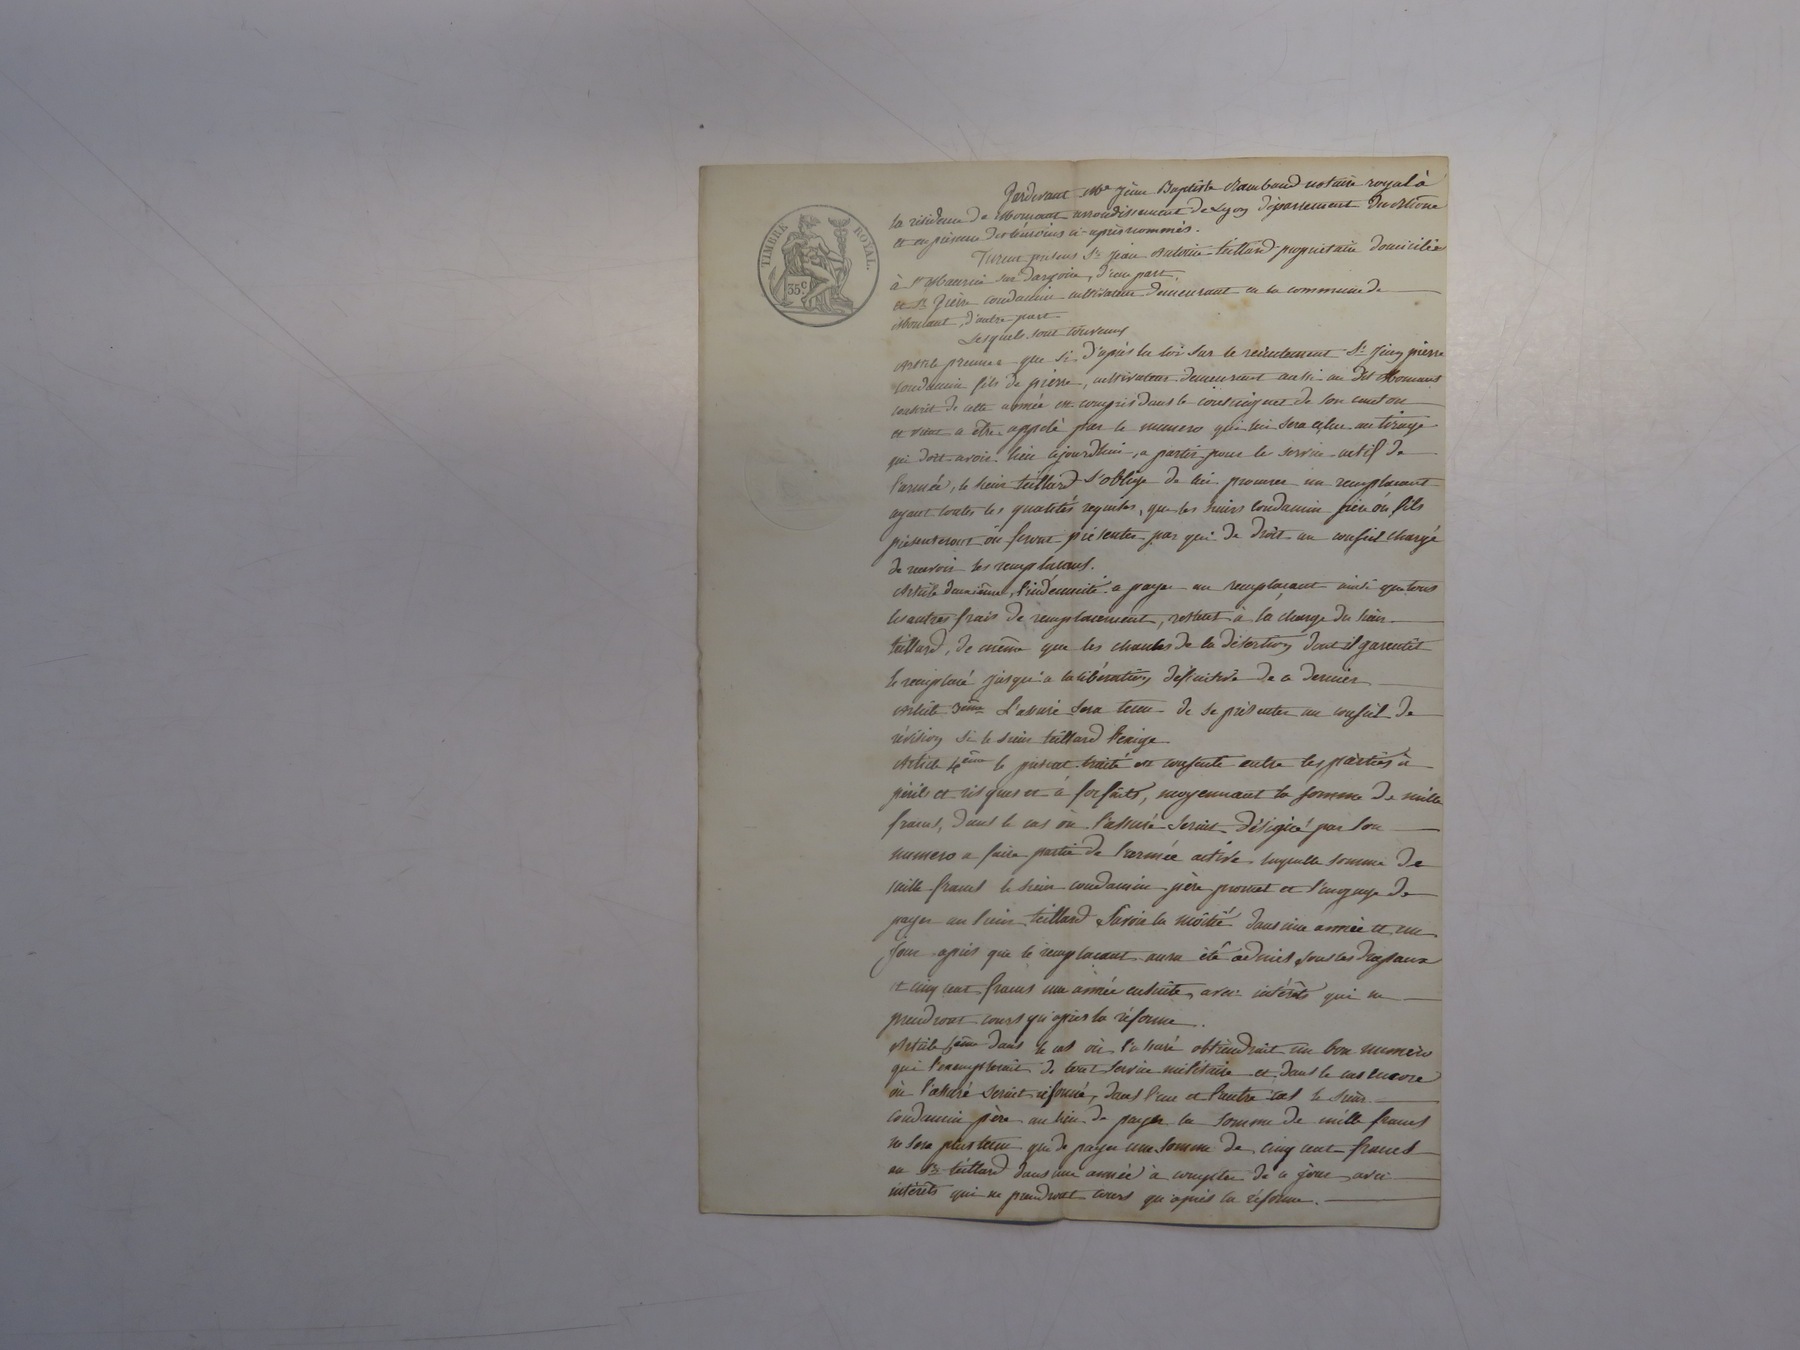 TIMBRE ROYAL.
35 c
Pardevant Me Jean Baptiste Rambaud notaire royal à
la résidence de Mornant arrondissement de Lyon département du Rhône
et en présence des témoins ci-après nommés.
Furent présens Sr Jean Antoine teillard propriétaire domicilié
à St Maurice sur dargoire, d'une part
et Sr Pierre Condamin cultivateur demeurant en la commune de
Mornant, d'autre part
Lesquels sont convenus
Article premier que si d'après la loi sur le recrutement Sr Jean pierre
Condamin fils de pierre, cultivateur demeurant aussi au dit Mornant
conscrit de cette année est compris dans le contingent de son canton
et vient a être appelé par le numero qui lui sera échu au tirage
qui doit avoir lieu cejourdhui, a partir pour le service actif de
l'armée, le sieur teillard s'oblige de lui procurer un remplaçant
ayant toutes les qualités requises, que les sieurs Condamin père ou fils
présenteront ou feront présenter par qui de droit au conseil chargé
de recevoir les remplaçans.
Article deuxième, l'indemnité a payer au remplaçant ainsi que tous
les autres frais de remplacement, restent à la charge du sieur
teillard, de même que les chances de la désertion dont il garentit
le remplacé jusqu'a la libération définitive de ce dernier
Article 3ème L'assuré sera tenu de se présenter au conseil de
révision si le sieur teillard l'exige
Article 4ème le présent traité est consenti entre les parties à
périls et risques et à forfaits, moyennant la somme de mille
francs, dans le cas où l'assuré serait désigné par son
numero a faire partie de l'armée active laquelle somme de
mille francs le sieur condamin père promet et s'engage de
payer au sieur teillard Savoir la môitié dans une année et un
jour après que le remplaçant aura été admis sous les drapeaux
et cinq cent francs une année ensuite, avec intérêts qui ne
prendront cours qu'après la réforme.
Article 5ème dans le cas où l'assuré obtiendrait un bon numéro
qui l'exempterait de tout service militaire et dans le cas encore
où l'assuré serait réformé, dans l'un et l'autre cas le sieur
condamin père au lieu de payer la somme de mille francs
ne sera plus tenu que de payer une somme de cinq cent francs
au Sr teillard dans une année à compter de ce jour avec
intérêts qui ne prendront cours qu'après la réforme.